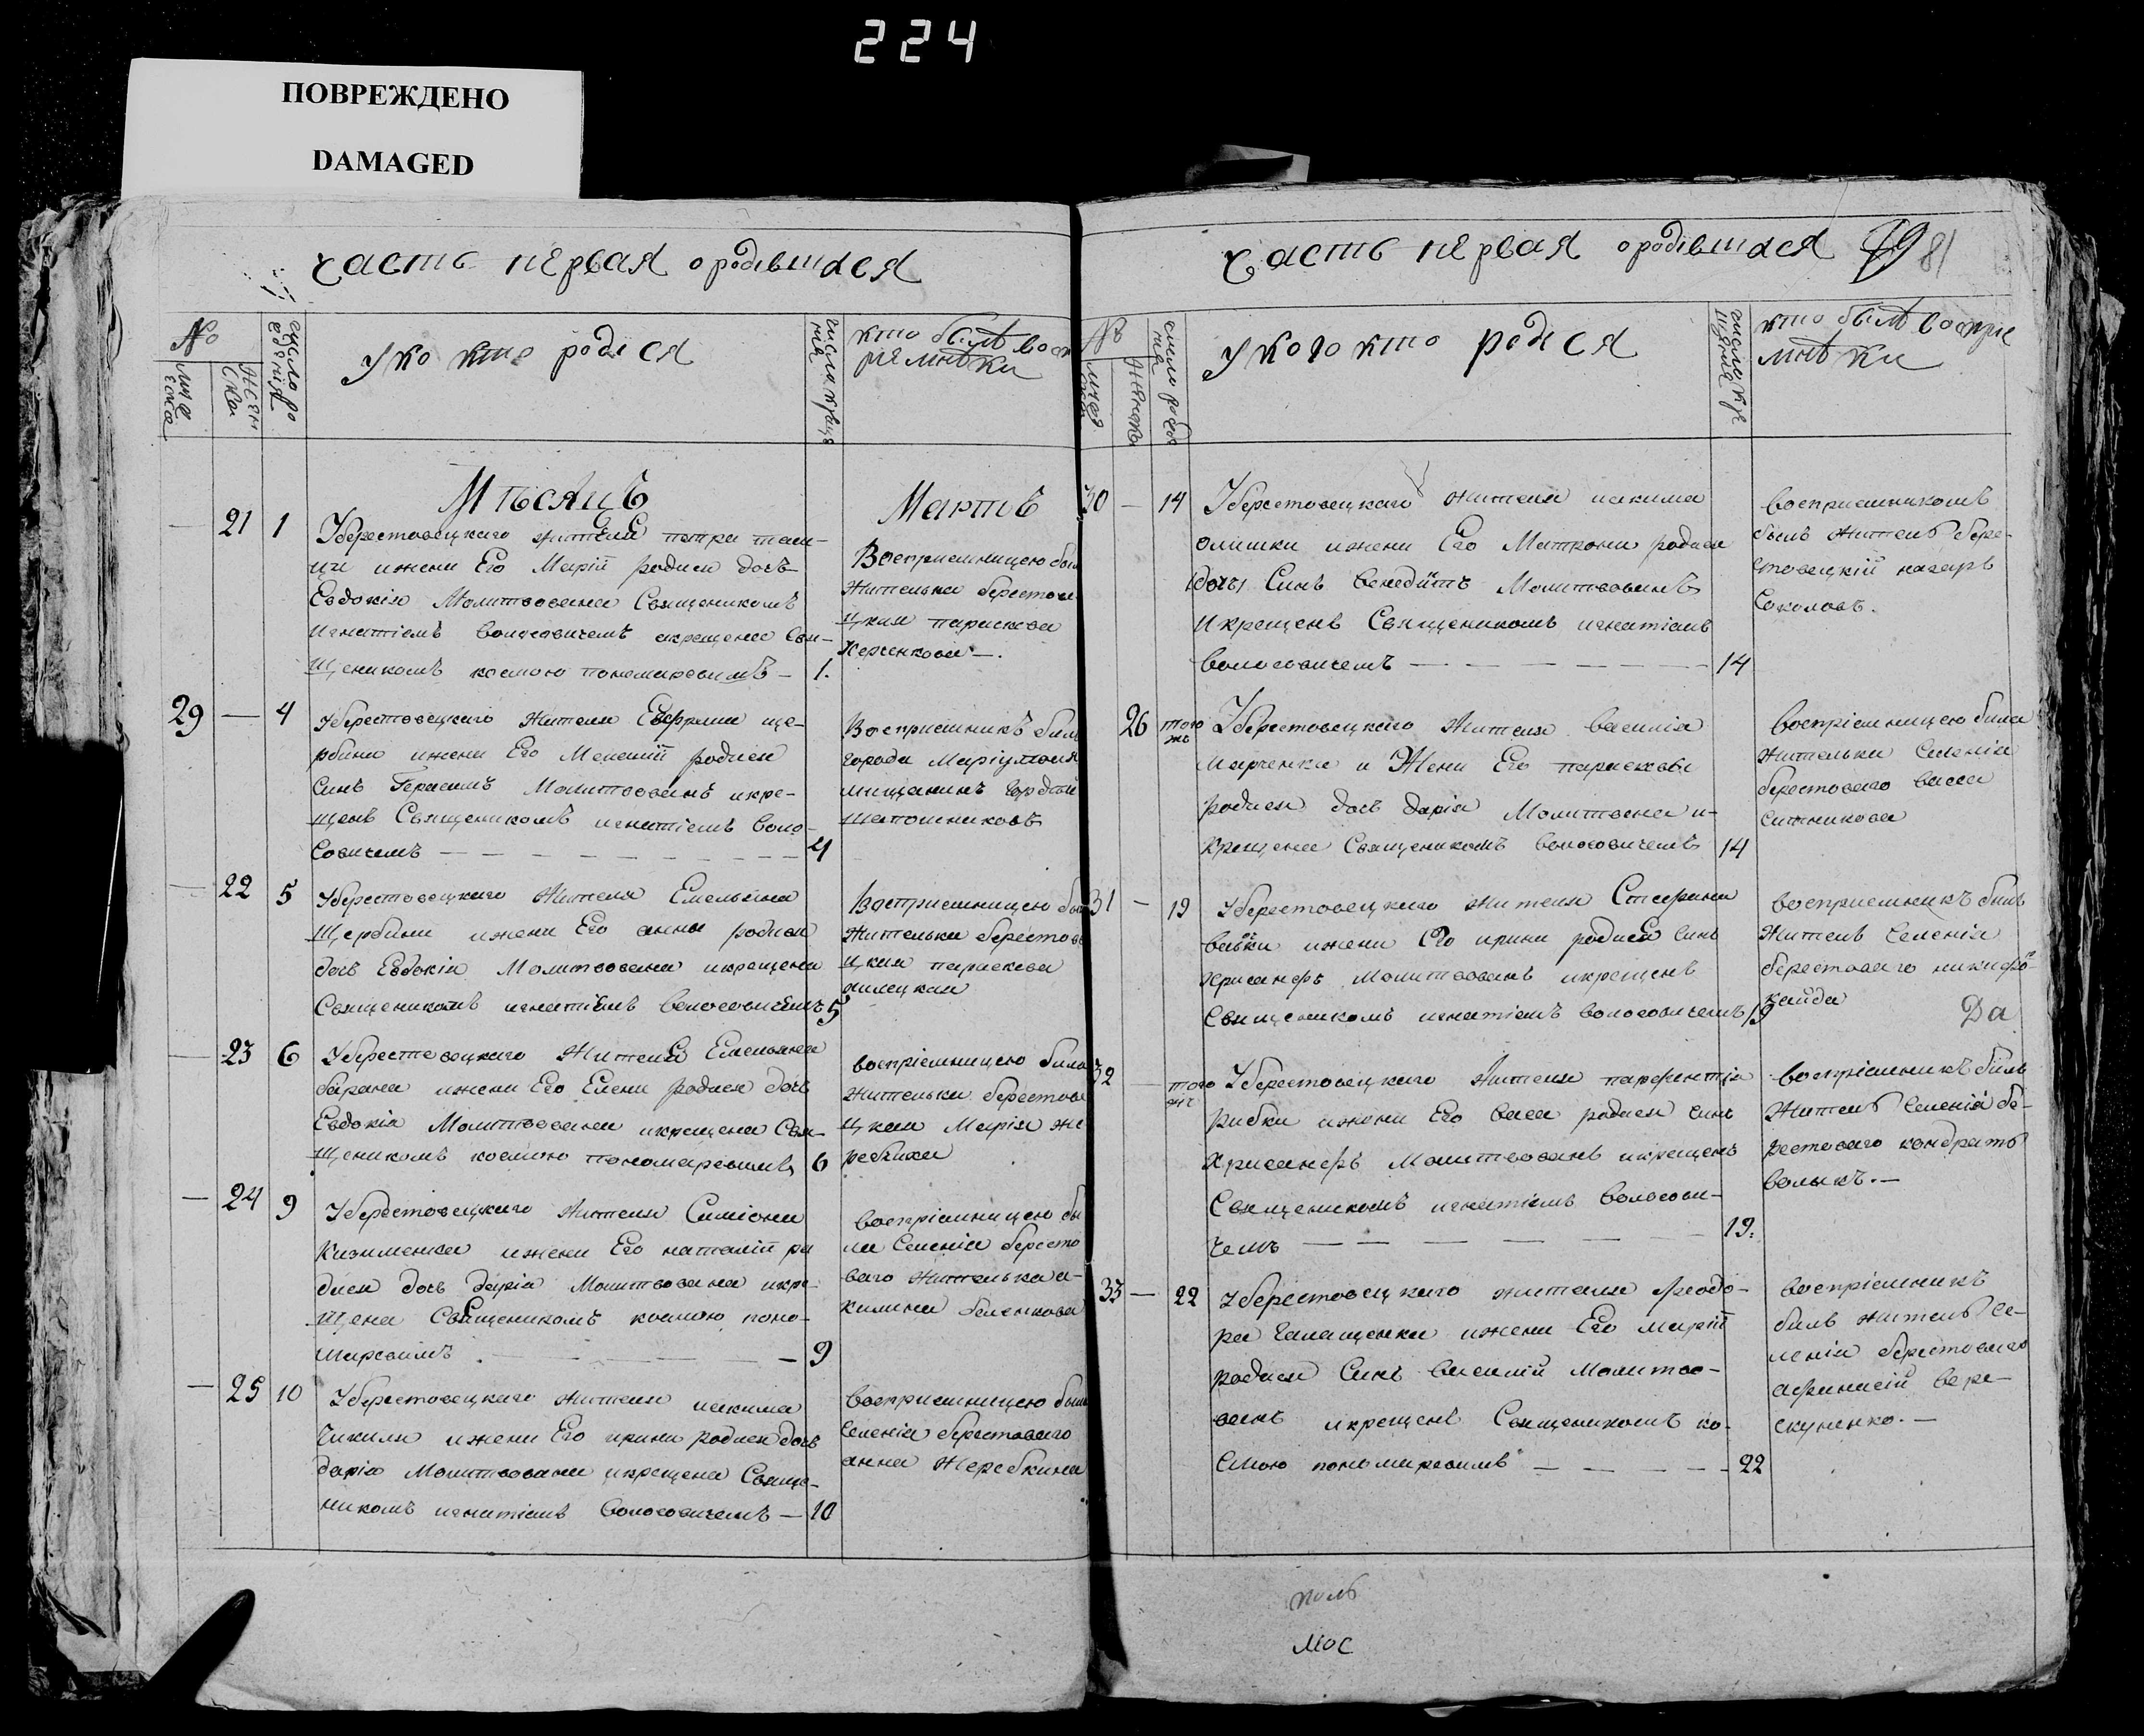 224
ПОВРЕЖДЕНО
DAMAGED
Часть первая о родившихся
№
мужеска
женска
число рожденія
У ко кто родися
число креще
нія
кто былъ восп
риемники
Мѣсяцъ
Мартъ
21 1 У берестовецкаго жителя петра
и жени Его Маріи родися дочь
Евдокія Молитвована Священикомъ
игнатіемъ волосовичемъ и крещена Свя-
щеникомъ космою пономаревимъ — 1.
Восприемницею была
жителька берестове
цкая параскева
29 — 4 У берестовецкаго жителя Евфрема ще-
рбини и жени Его Меланіи родися
Синъ Герасимъ Молитвованъ и кре-
щенъ Священикомъ игнатіемъ воло-
совичемъ — 4
Восприемникъ билъ
города Маріуполя
мищанинъ
шапошниковъ
— 22 5 У берестовецкаго жителя Емельяна
Щербини и жени Его анны родися
дочь Евдокія Молитвована и крещена
Священикомъ игнатіемъ волосовичемъ 5
Восприемницею была
жителька берестове
цкая параскева
— 23 6 У берестовецкаго жителя Емельяна
барана и жени Его Елени родися дочь
Евдокія Молитвована и крещена Свя-
щеникомъ космою пономаревимъ 6
воспріемницею била
жителька берестове
цкая Марія же
ребкина
— 24 9 У берестовецкаго жителя Симіона
Кизименка и жени Его наталіи ро
дися дочь дарія Молитвована и кре-
щена Священикомъ космою поно-
маревимъ — 9
воспріемницею бы
ла Селенія бересто
ваго жителька а-
килина беленкова
— 25 10 У берестовецкаго жителя иакима
Чикили и жени Его ирини родися дочь
дарія Молитвована и крещена Свяще-
никомъ игнатіемъ волосовичемъ — 10
восприемницею была
Селенія берестоваго
анна Жеребкина
Часть первая о родившихся 79 81
№
женска
У кого кто родися
кто былъ восприе
мники
30 — 14 У берестовецкаго жителя иакима
олишки и жени Его Матрони родися
Синъ венедиктъ Молитвованъ
и крещенъ Священикомъ игнатіемъ
волосовичемъ — 14
восприемникомъ
былъ житель бере-
стовецкій назаръ
Соколовъ.
26 того жъ У берестовецкаго жителя василія
Марченка и Жени Его параскеви
родися дочь дарія Молитвована и-
крещена Священикомъ волосовичемъ 14
воспріемницею била
жителька Селенія
берестоваго васса
ситникова
31 — 19 У берестовецкаго жителя Стефана
и жени Его ирини родися Синъ
хрисанфъ Молитвованъ и крещенъ
Священикомъ игнатіемъ волосовичемъ 19
восприемникъ билъ
житель Селенія
берестоваго никифоръ
кайда
Да
32 — того жъ У берестовецкаго жителя парфентія
рибки и жени Его васси родися синъ
Хрисанфъ Молитвованъ и крещенъ
Священикомъ игнатіемъ волосови-
чемъ — 19.
воспріемникъ билъ
житель Селенія бе-
рестоваго кондратъ
волыкъ. —
33 — 22 У берестовецкаго жителя феодо-
ра Галащенка и жени Его маріи
родися Синъ василій Молитво-
ванъ и крещенъ Священикомъ ко-
смою пономаревимъ — 22
воспріемникъ
билъ житель се-
ленія берестоваго
афанасій вере-
скуненко. —
мос